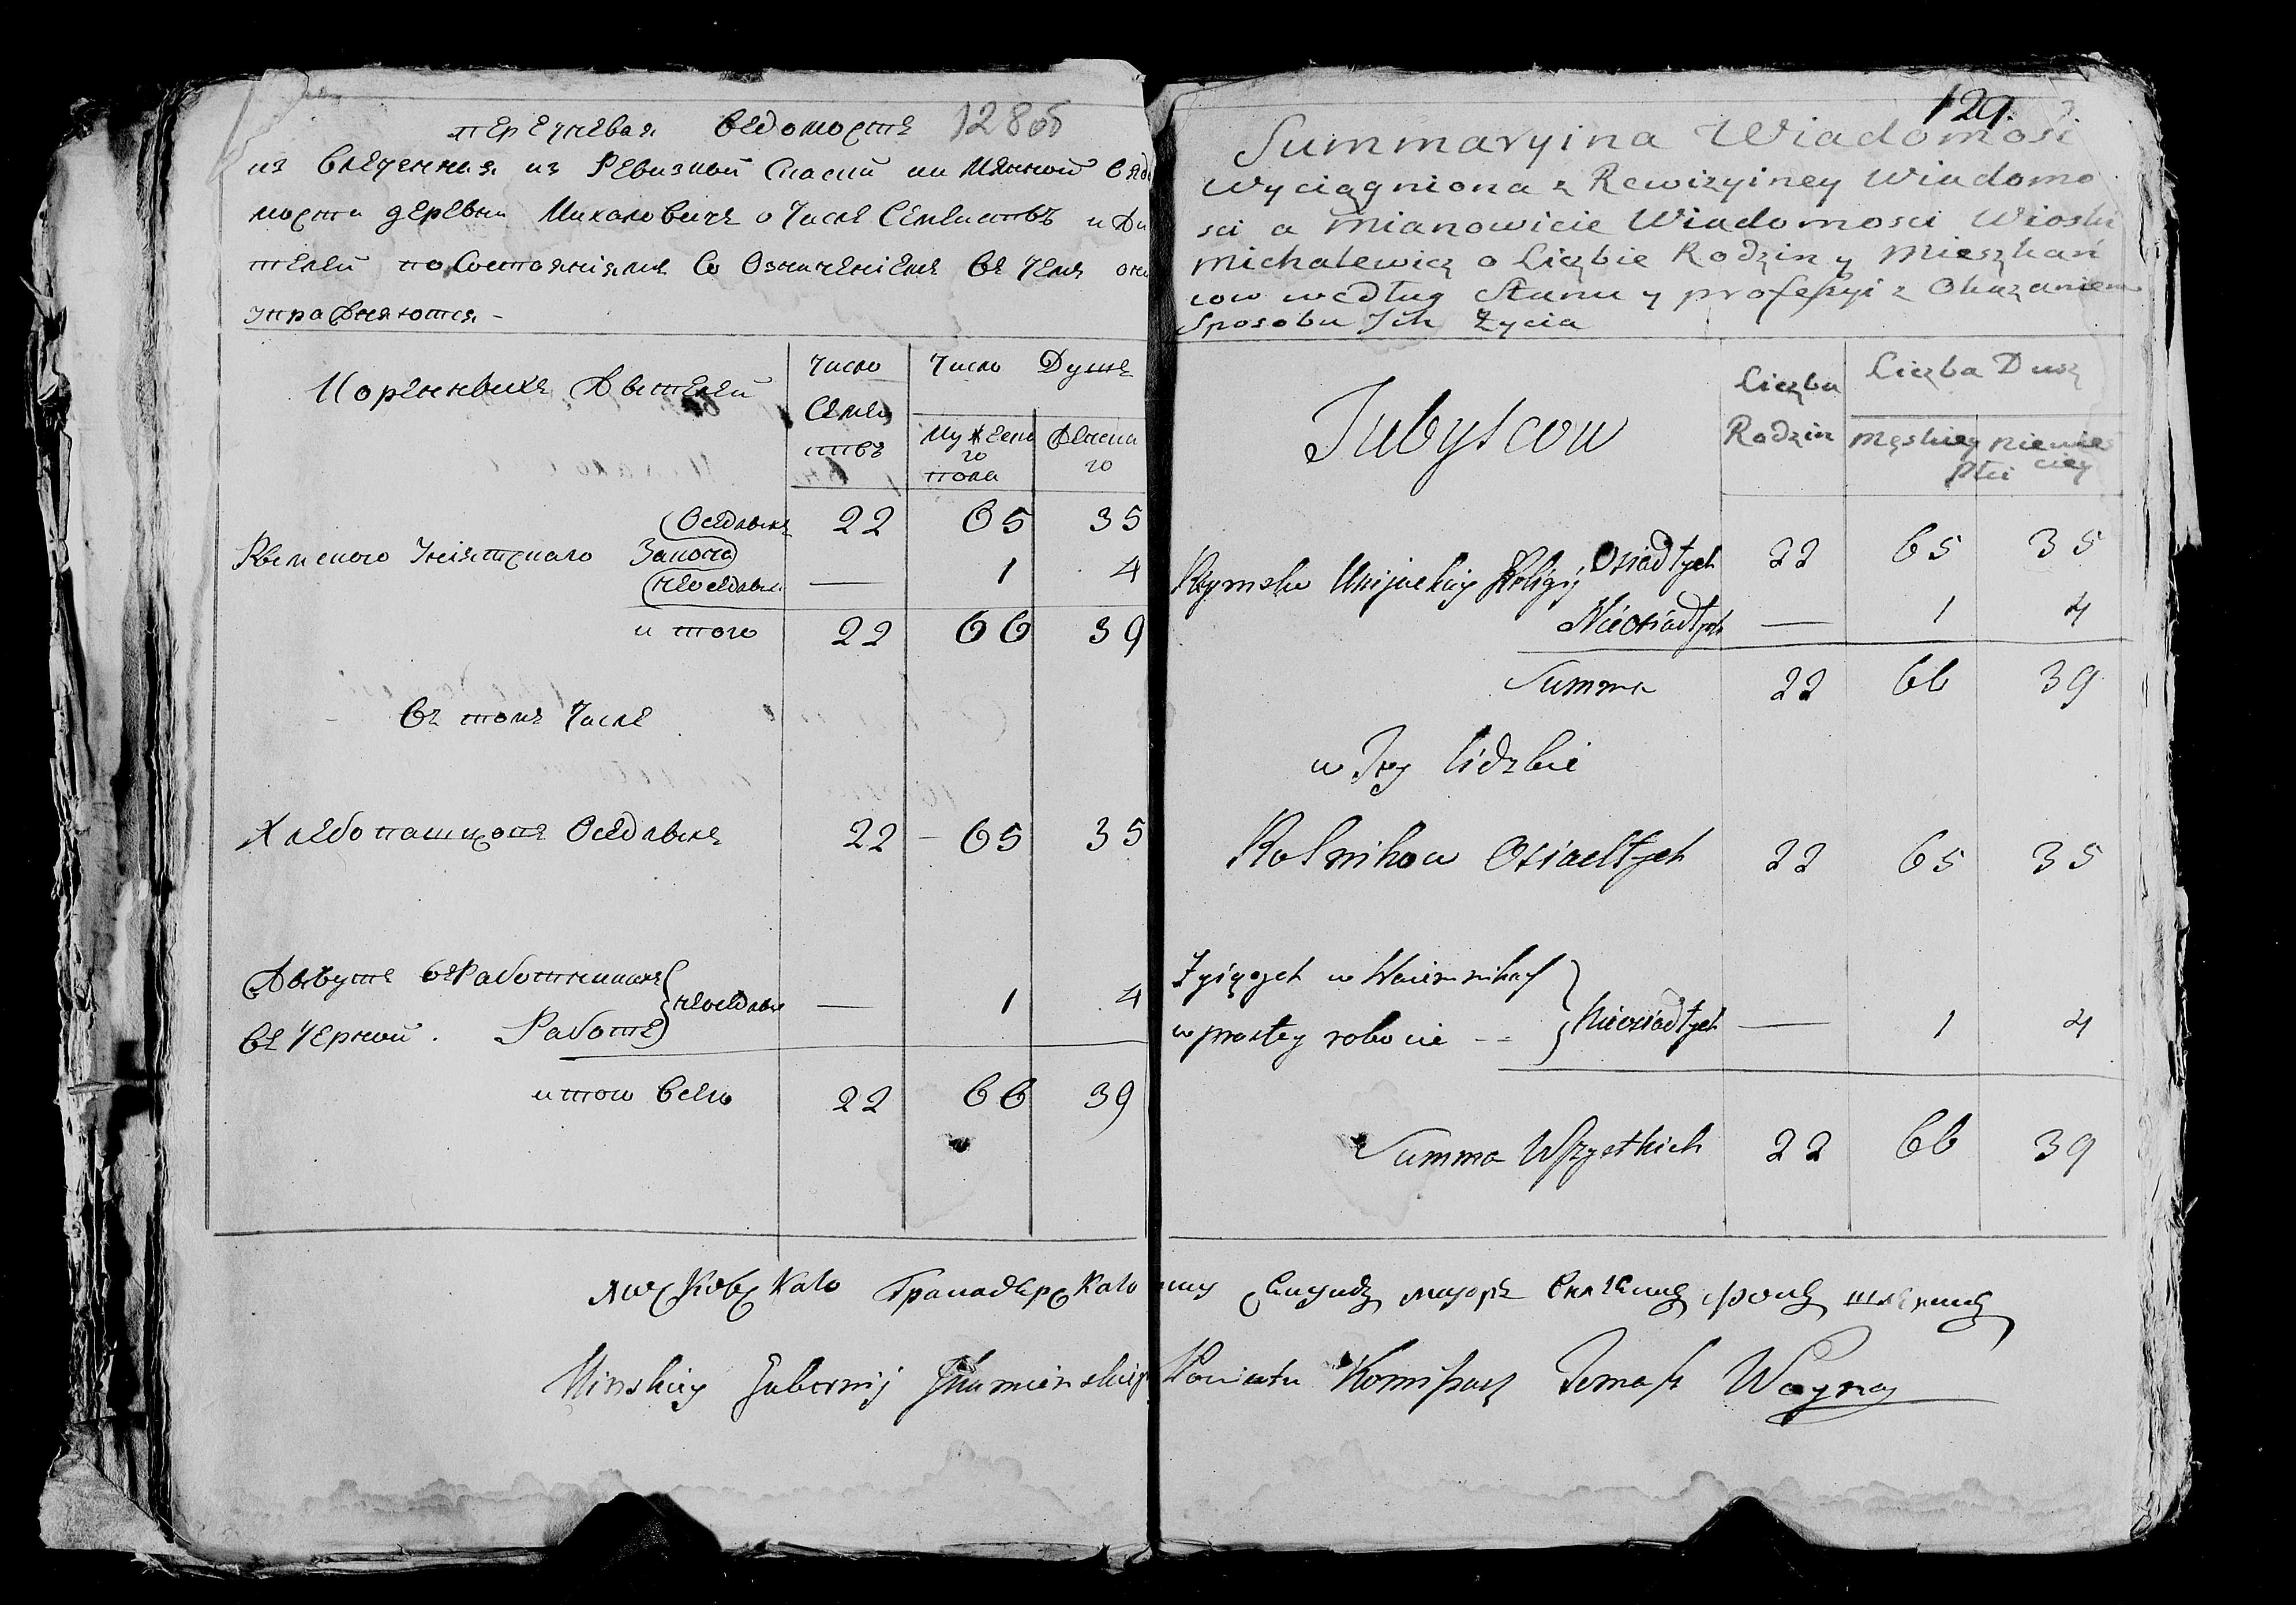 128об
перечневая ведомость
из влеченная из Ревизкой Сказки и имянной вядо
мости деревни Михаловичъ о Числе Семействъ и Жи
телей по Состояніямъ Со Означеніемъ въ чемъ они
упражняются -
Коренныхъ Жытелей
Число Семействъ
Число Душъ
Мужескаго пола
Женска го
Оседлыхъ 22 65 35
Рымского Уніятского Закона
Неоседлых — 1 4
и того 22 66 39
въ томъ Числе
Хлебопашцовъ Оседлыхъ 22 65 35
Жывутъ въ Работникахъ
въ Черной Работе
неоседлые — 1 4
итого всего 22 66 39
129.
Summaryina Wiadomosc
Wyciągniona z Rewizyiney Wiadomo
sci a mianowicie Wiadomosci Wioski
Michalewicz o Liczbie Rodzin y Mieszkań
cow według Stanu y professyi z Okazaniem
Sposobu Ich Zycia
Tubylcow
Liczba Rodzin
Liczba Dusz
Męskiey niewies ciey
Płci
Osiadłych 22 65 35
Rzymsko Unijackiey Religij
Nieosiadłych — 1 4
Summa 22 66 39
w Tey liczbie
Rolnikow Osiadłych 22 65 35
Zyiących w Naiemnikach
w prostey robocie -- Nieosiadłych — 1 4
Summa Wszystkich 22 66 39
Московскаго Гранадерскаго полку
Minskiey Gubernij Ihumenskiego Powiatu Komissarz Tomasz Wayna